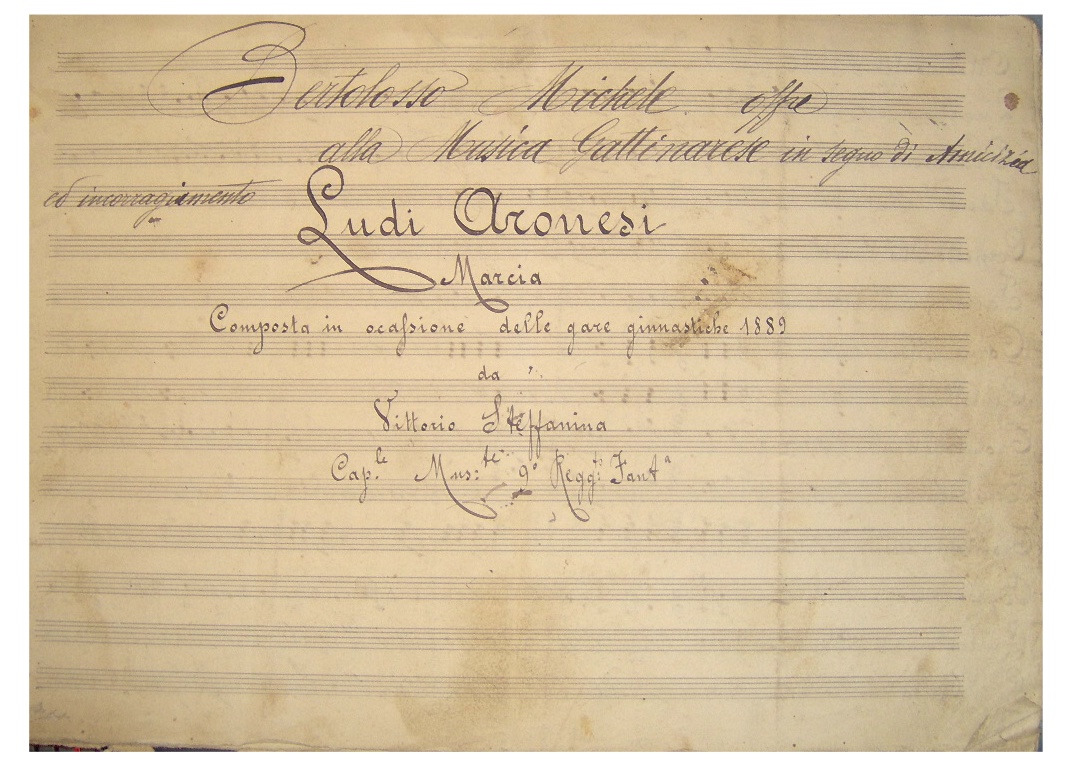 Bertolosso Michele offre
alla Musica Gattinarese in segno di Amicizia
ed incorragiamento
Ludi Aronesi
Marcia
Composta in ocassione delle gare ginnastiche 1889
da
Vittorio Steffanina
Cap.le Mus:te 9° Regg.to Fant.a